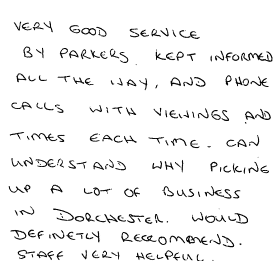 VERY GOOD SERVICE
BY PARKERS. KEPT INFORMED
ALL THE WAY, AND PHONE
CALLS WITH VIEWINGS AND
TIMES EACH TIME. CAN
UNDERSTAND WHY PICKING
UP A LOT OF BUSINESS
IN DORCHESTER. WOULD
DEFINETLY RECROMMEND.
STAFF VERY HELPFUL.